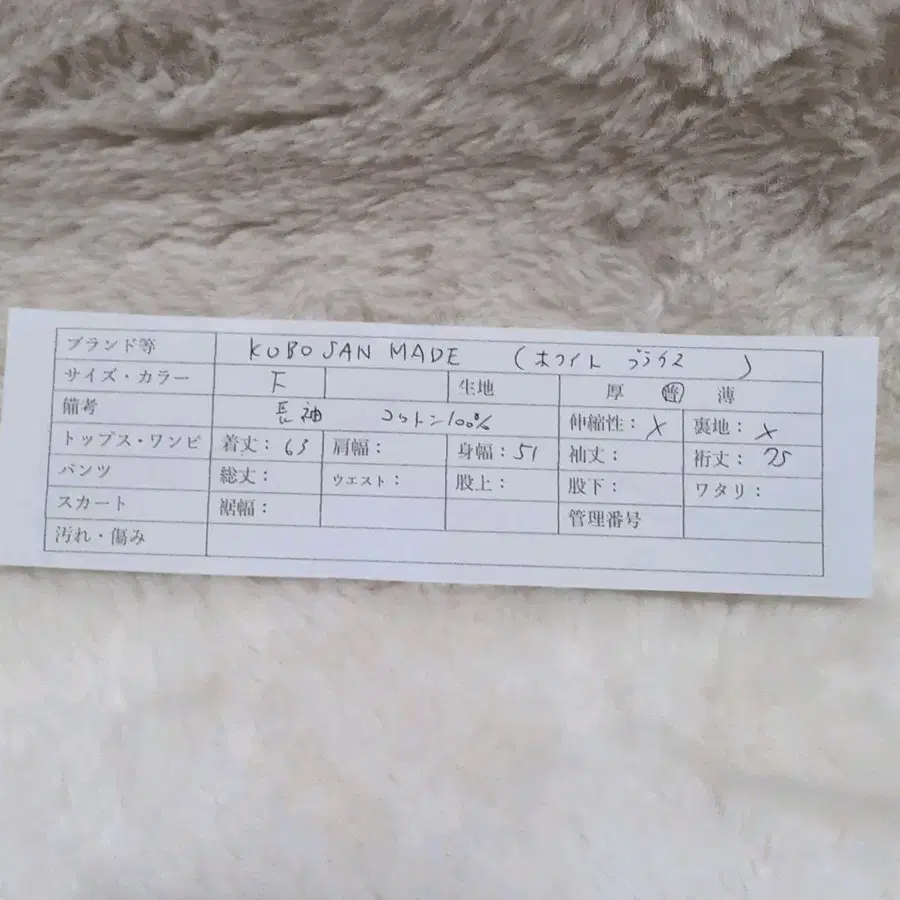 ブランド等 KUBO SAN MADE (ホワイト ブラウス )
サイズ・カラー F 生地 厚 普 薄
備考 長袖 コットン100% 伸縮性：× 裏地：×
トップス・ワンピ 着丈：63 肩幅： 身幅：51 袖丈： 裄丈：75
パンツ 総丈： ウエスト： 股上： 股下： ワタリ：
スカート 裾幅： 管理番号
汚れ・傷み